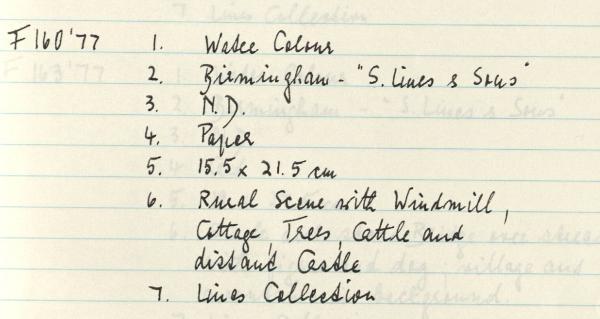 F160'77 1. Water Colour
2. Birmingham - "S. Lines & Sons"
3. N.D.
4. Paper
5. 15.5 x 21.5 cm
6. Rural Scene with Windmill,
Cottage, Trees, Cattle and
distant Castle
7. Lines Collection